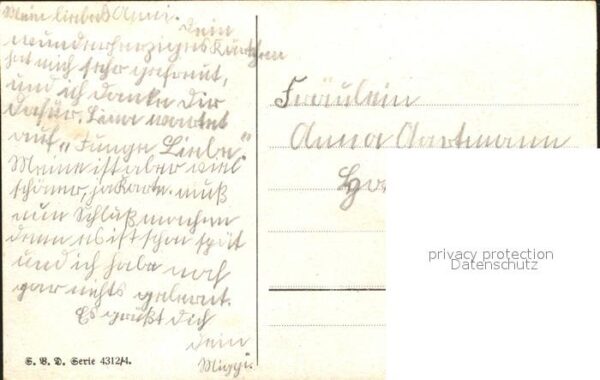 Mein liebes Anni.
Dein
wunderherziges Kärtchen
hat mich sehr gefreut,
und ich danke Dir
dafür. Lina wartet
auf „Junge Liebe“.
Meine ist aber viel
schöner, ja Karte. muß
nun Schluß machen
denn es ist schon spät
und ich habe noch
gar nichts gelernt.
Es grüßt dich
dein
Mizzi.
Fräulein
Anna Hartmann
privacy protection
Datenschutz
S. V. D. Serie 4312/4.